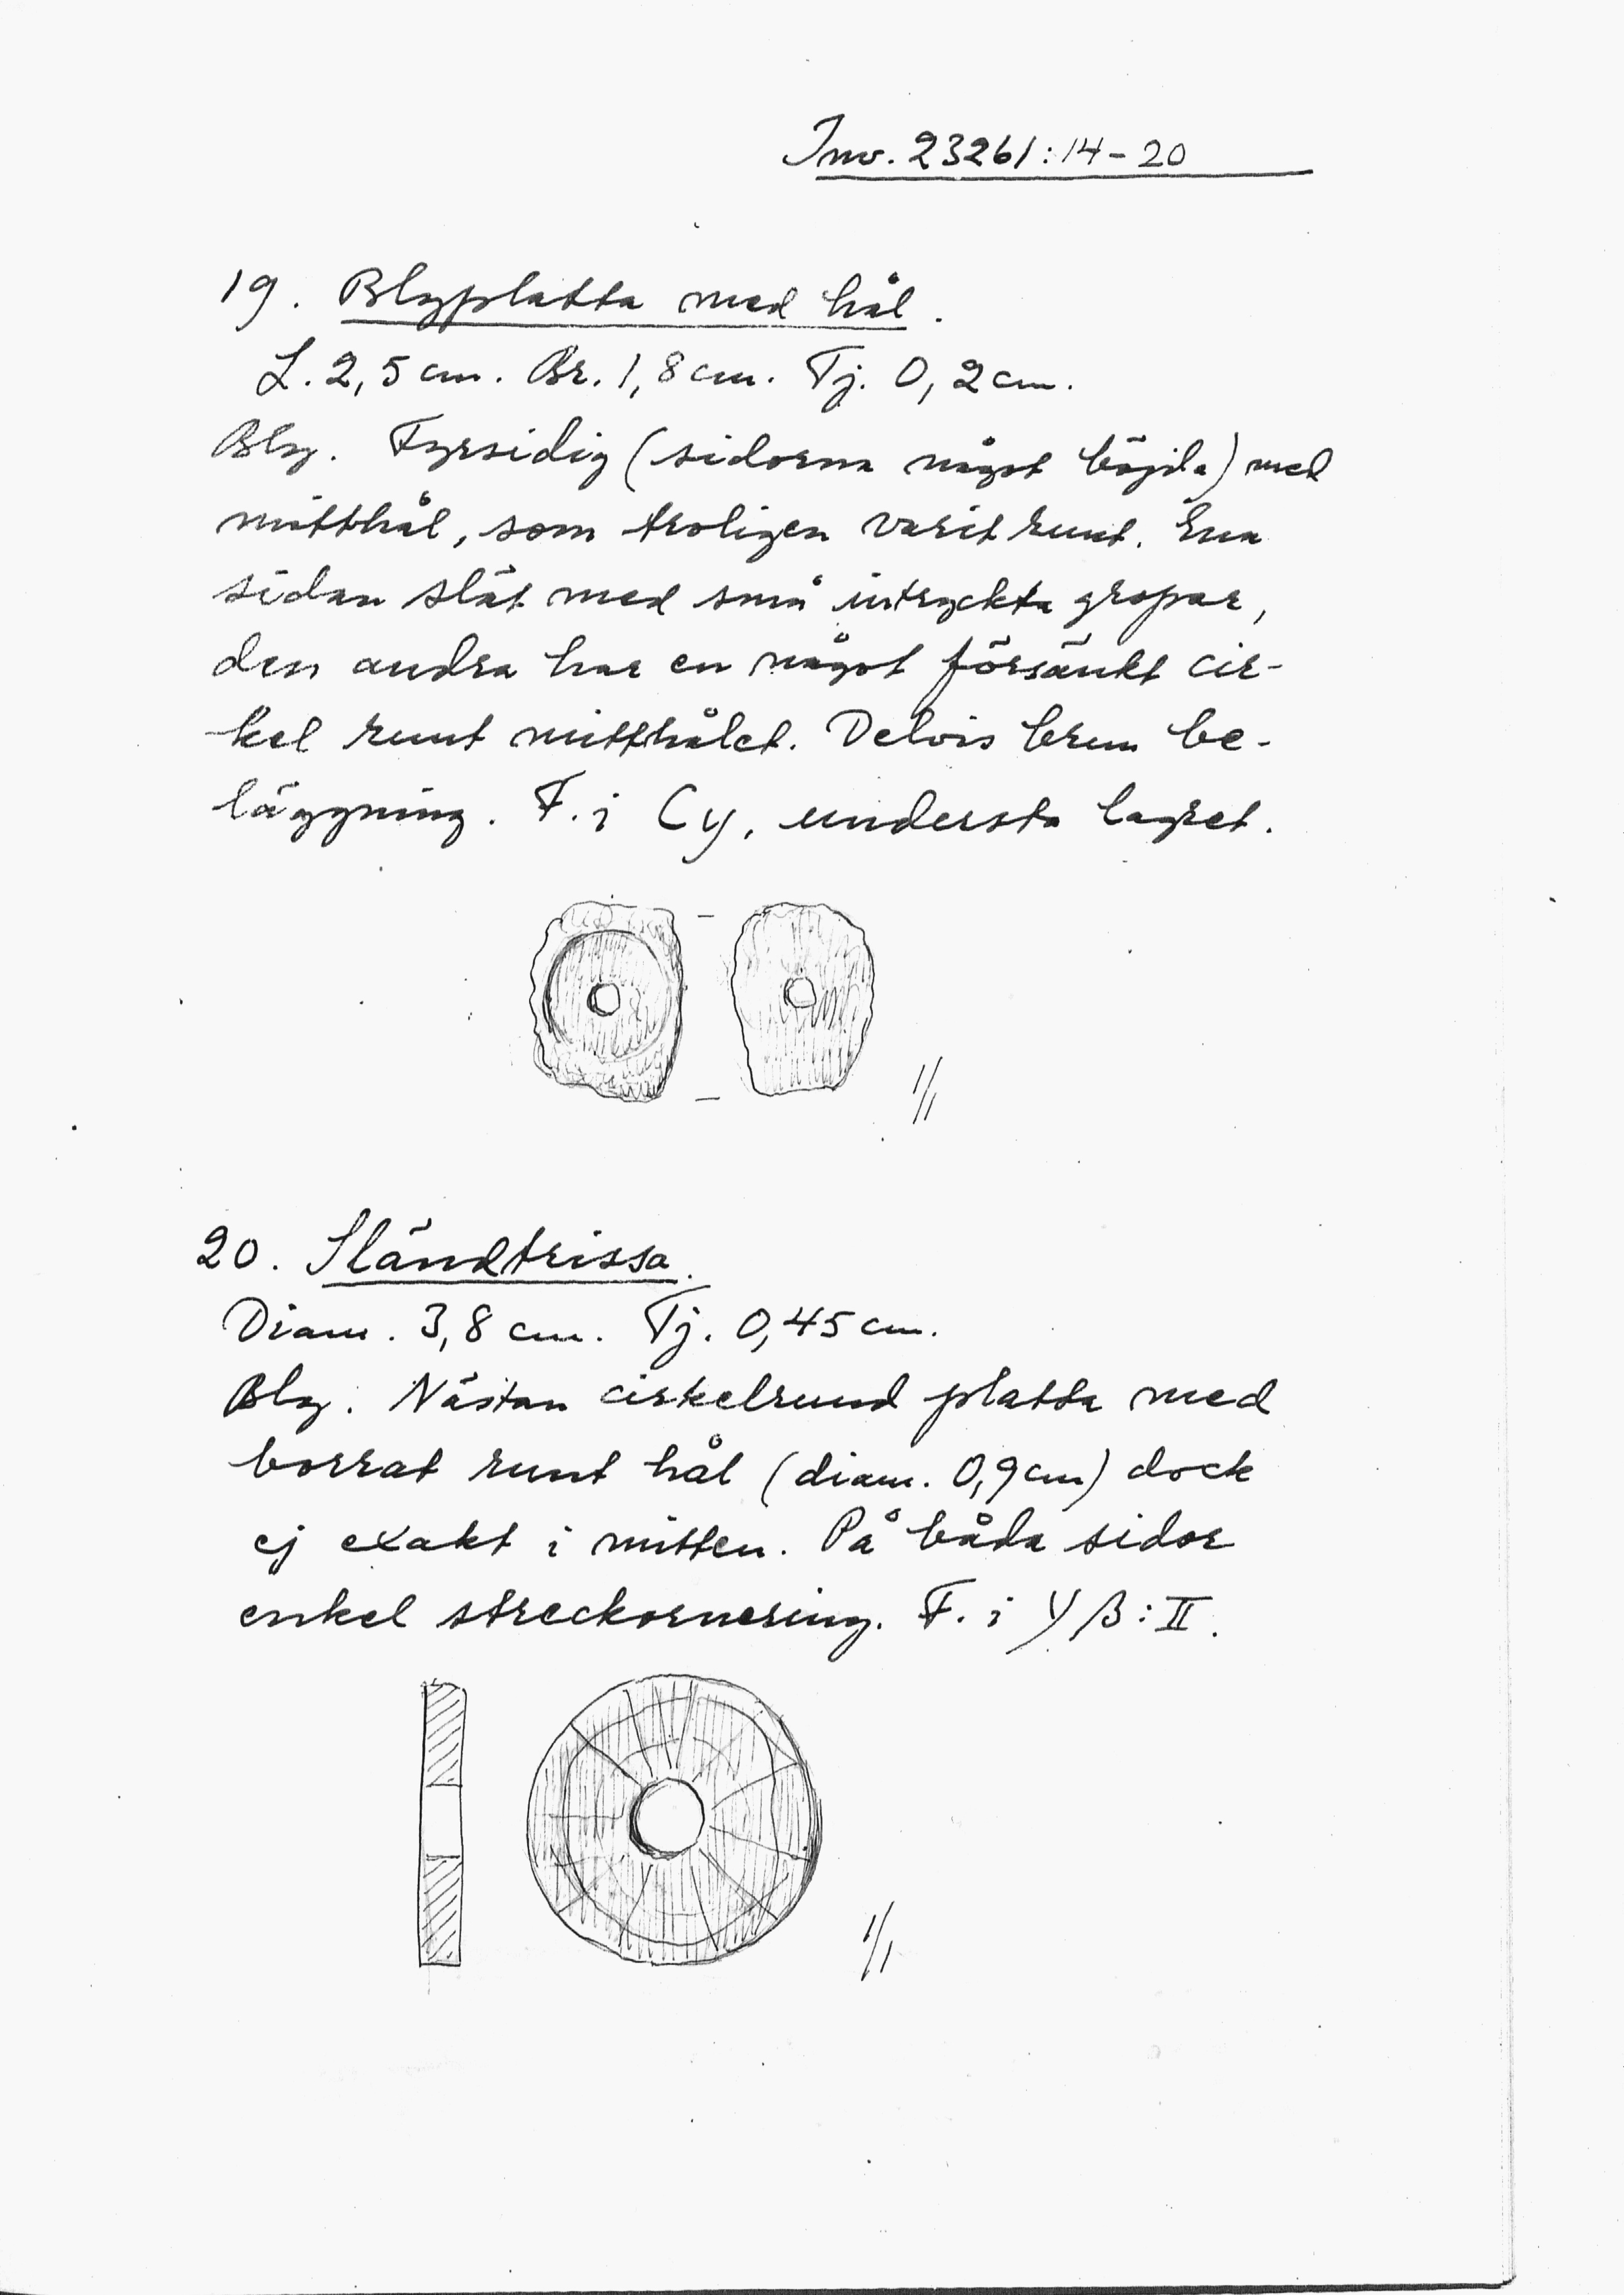 Inv. 23261:14-20
19. Blyplatta med hål.
L. 2,5 cm. Br. 1,8 cm. Tj. 0,2 cm.
Bly. Fyrsidig (sidorna något böjda) med
mitthål, som troligen varit runt. Ena
sidan slät med små intryckta gropar,
den andra har en något försänkt cir-
kel runt mitthålet. Delvis brun be-
läggning. F. i Cy, understa lagret.
1/1
20. Sländtrissa.
Diam. 3,8 cm. Tj. 0,45 cm.
Bly. Nästan cirkelrund platta med
borrat runt hål (diam. 0,9 cm) dock
ej exakt i mitten. På båda sidor
enkel streckornering. F. i Yβ:II.
1/1